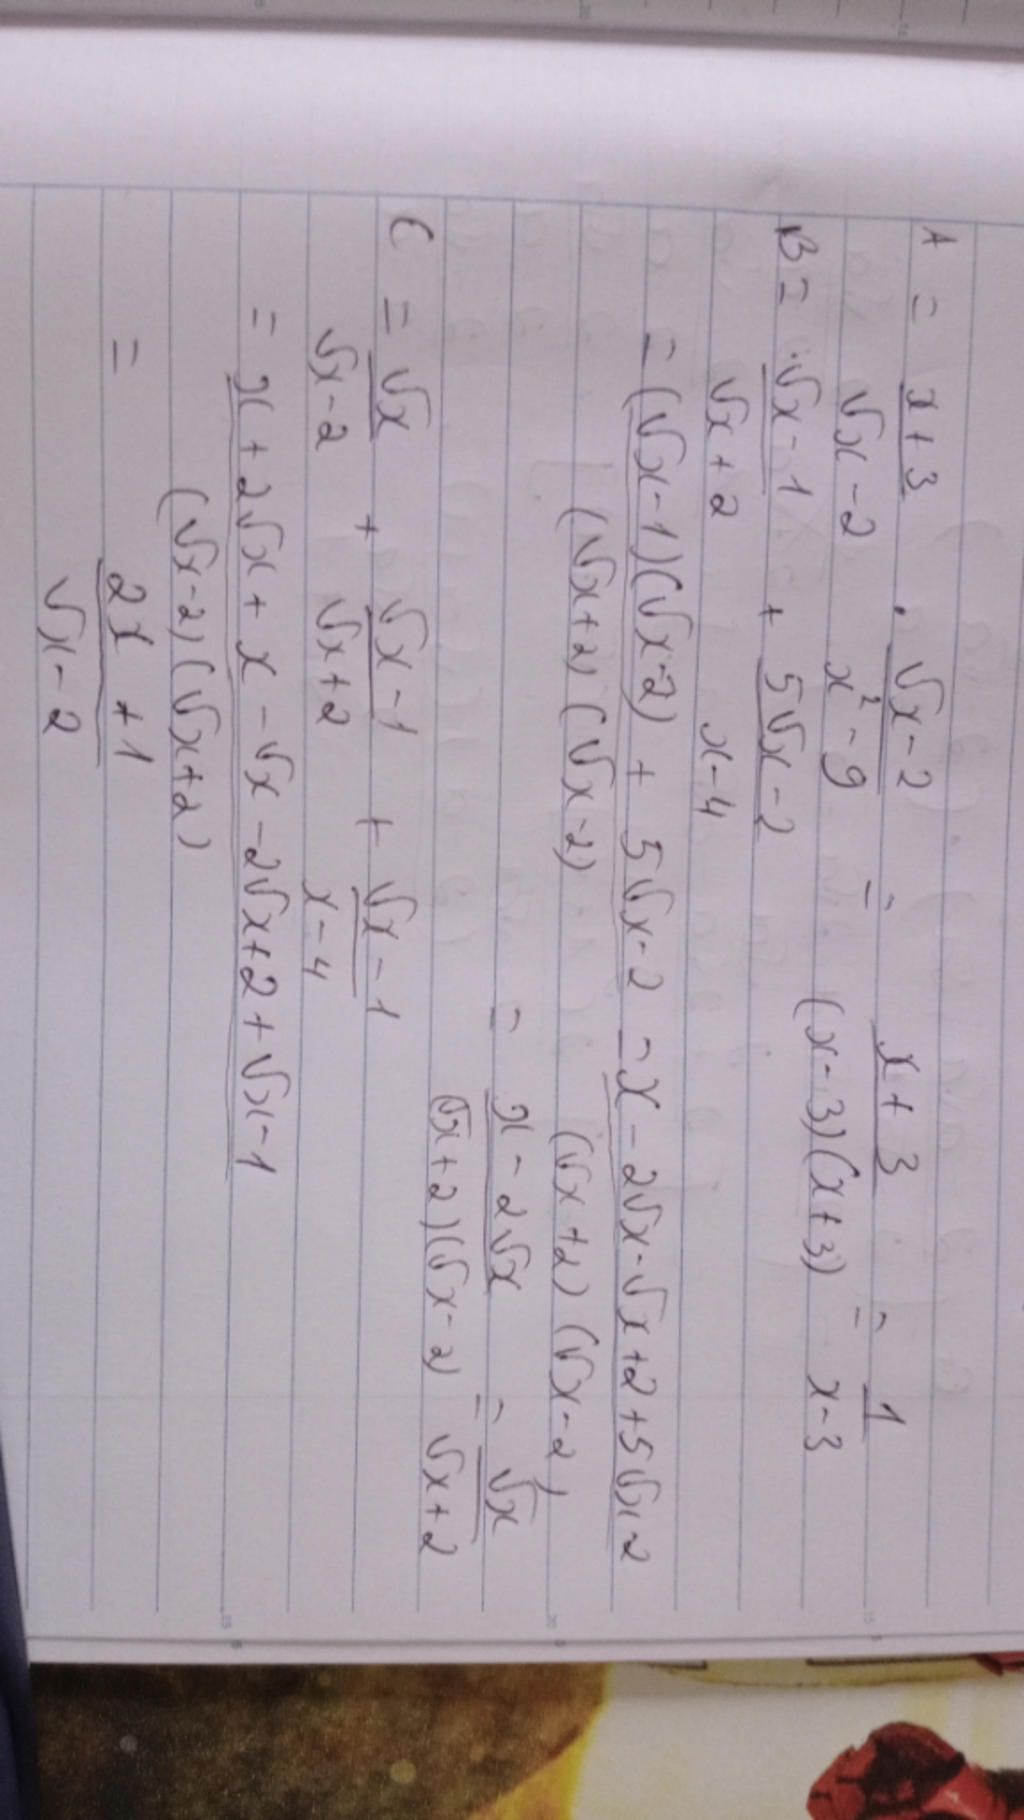 A = x+3 / √x-2 . √x-2 / x²-9 = x+3 / (x-3)(x+3) = 1 / x-3
B = √x-1 / √x+2 + 5√x-2 / x-4
= (√x-1)(√x-2) + 5√x-2 / (√x+2)(√x-2) = x-2√x-√x+2+5√x-2 / (√x+2)(√x-2)
= x-2√x / (√x+2)(√x-2) = √x / √x+2
C = √x / √x-2 + √x-1 / √x+2 + √x-1 / x-4
= x+2√x+x-√x-2√x+2+√x-1 / (√x-2)(√x+2)
= 2x+1 / √x-2